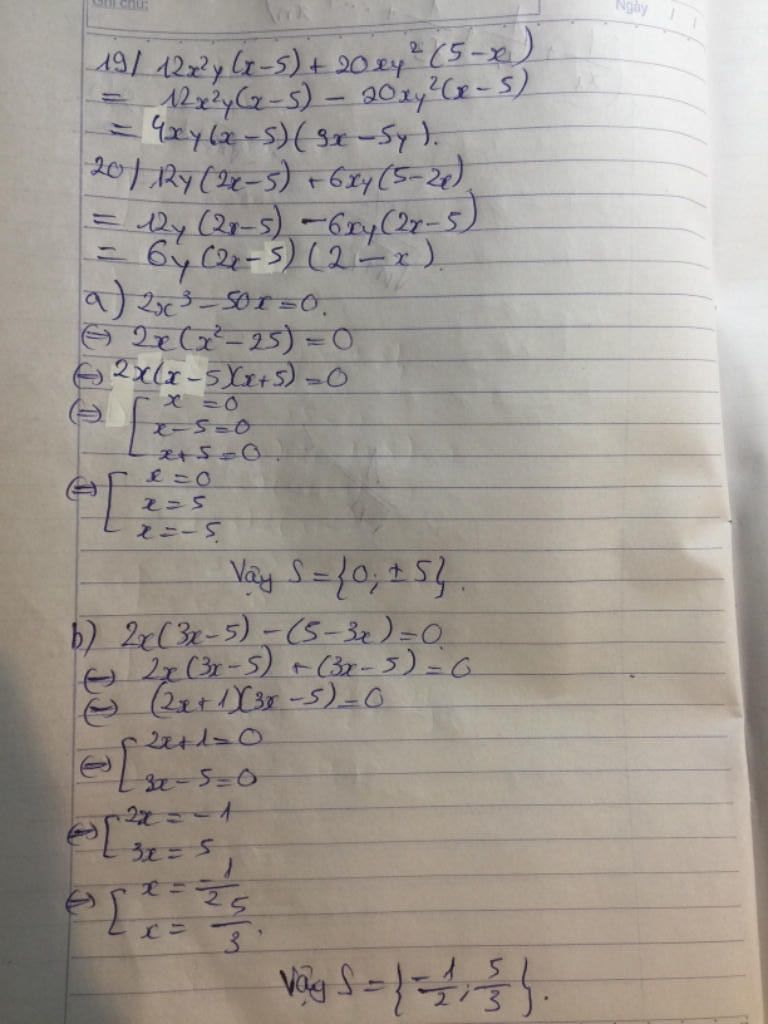 Ghi chú:
Ngày
19/ 12x²y(x-5) + 20xy²(5-x)
= 12x²y(x-5) - 20xy²(x-5)
= 4xy(x-5)(3x-5y).
20/ 12y(2x-5) + 6xy(5-2x)
= 12y(2x-5) - 6xy(2x-5)
= 6y(2x-5)(2-x)
a) 2x³ - 50x = 0.
⇔ 2x(x²-25) = 0
⇔ 2x(x-5)(x+5) = 0
⇔ [ x = 0
x-5 = 0
x+5 = 0.
⇔ [ x = 0
x = 5
x = -5.
Vậy S = {0; ±5}.
b) 2x(3x-5) - (5-3x) = 0.
⇔ 2x(3x-5) + (3x-5) = 0
⇔ (2x+1)(3x-5) = 0
⇔ [ 2x+1 = 0
3x-5 = 0
⇔ [ 2x = -1
3x = 5
⇔ [ x = -1/2
x = 5/3.
Vậy S = {-1/2; 5/3}.